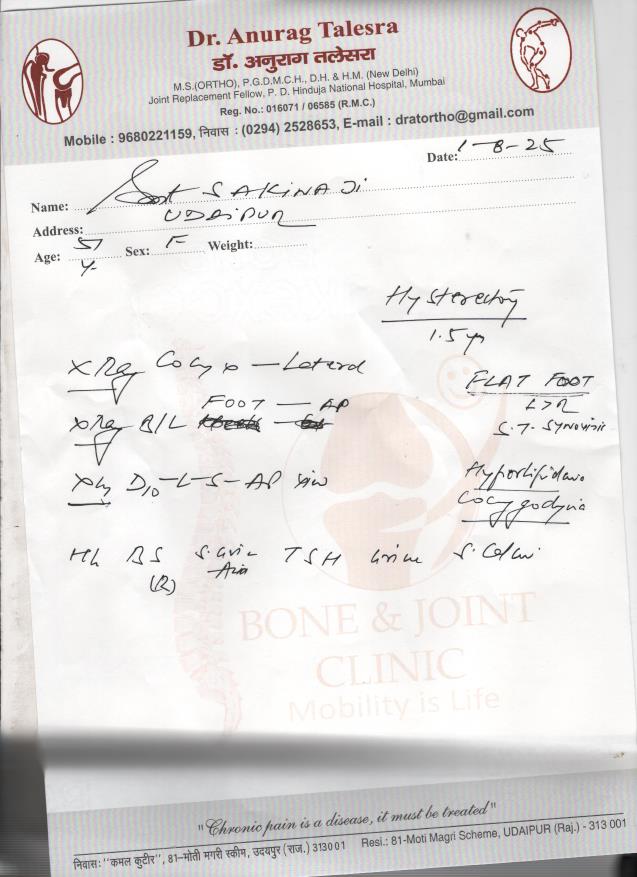 Dr. Anurag Talesra
डॉ. अनुराग तलेसरा
M.S.(ORTHO), P.G.D.M.C.H., D.H. & H.M. (New Delhi)
Joint Replacement Fellow, P. D. Hinduja National Hospital, Mumbai
Reg. No.: 016071 / 06585 (R.M.C.)
Mobile : 9680221159, निवास : (0294) 2528653, E-mail : dratortho@gmail.com
Date: 1-8-25
Name: SAKINA Ji
Address: UDAIPUR
Age: 51 y Sex: F Weight:
Hysterectomy
1.5 yr
X Ray Coccyx - Lateral
FLAT FOOT
L>R
FOOT - AP
X Ray B/L
S.T. SYNOVITIS
X Ray D10-L-S-AP view
Hyperlipidemia
Coccygodynia
Hb BS S. Uric TSH Urine
(R) Acid
BONE & JOINT
CLINIC
Mobility is Life
"Chronic pain is a disease, it must be treated"
निवास: "कमल कुटीर", 81-मोती मगरी स्कीम, उदयपुर (राज.) 313001 Resi.: 81-Moti Magri Scheme, UDAIPUR (Raj.) - 313 001